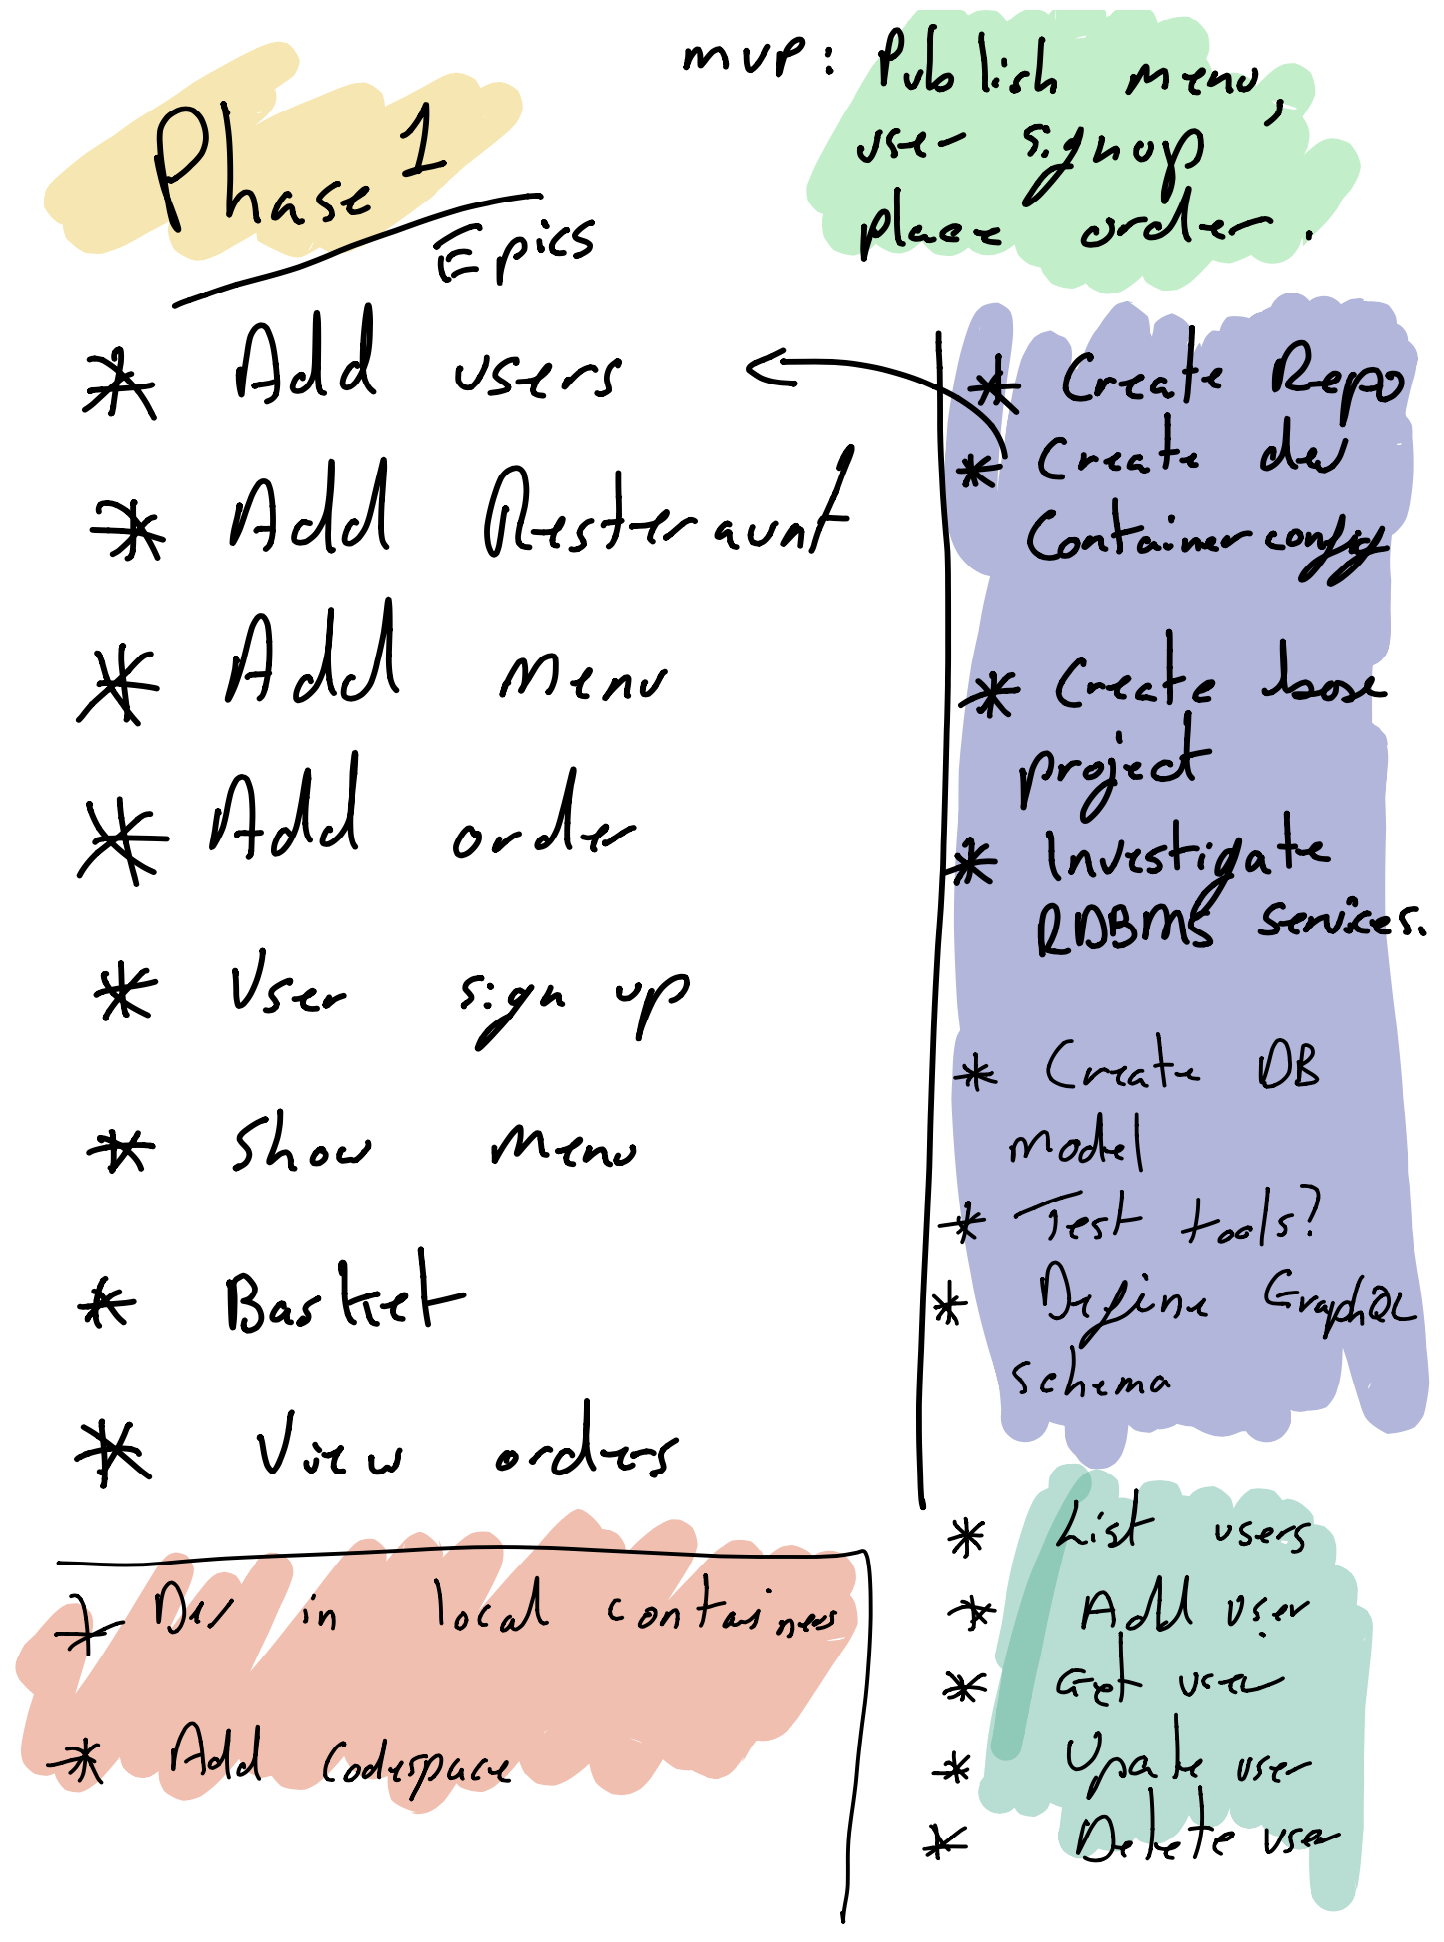 Phase 1
Epics
mvp: Publish menu,
user signup
place order.
* Add users
* Add Resteraunt
* Add Menu
* Add order
* User sign up
* Show Menu
* Basket
* View orders
* Create Repo
* Create dev
Container config
* Create base
project
* Investigate
RDBMS services.
* Create DB
model
* Test tools?
* Define GraphQL
schema
* List users
* Add user
* Get user
* Upate user
* Delete user
* Dev in local containers
* Add Codespace